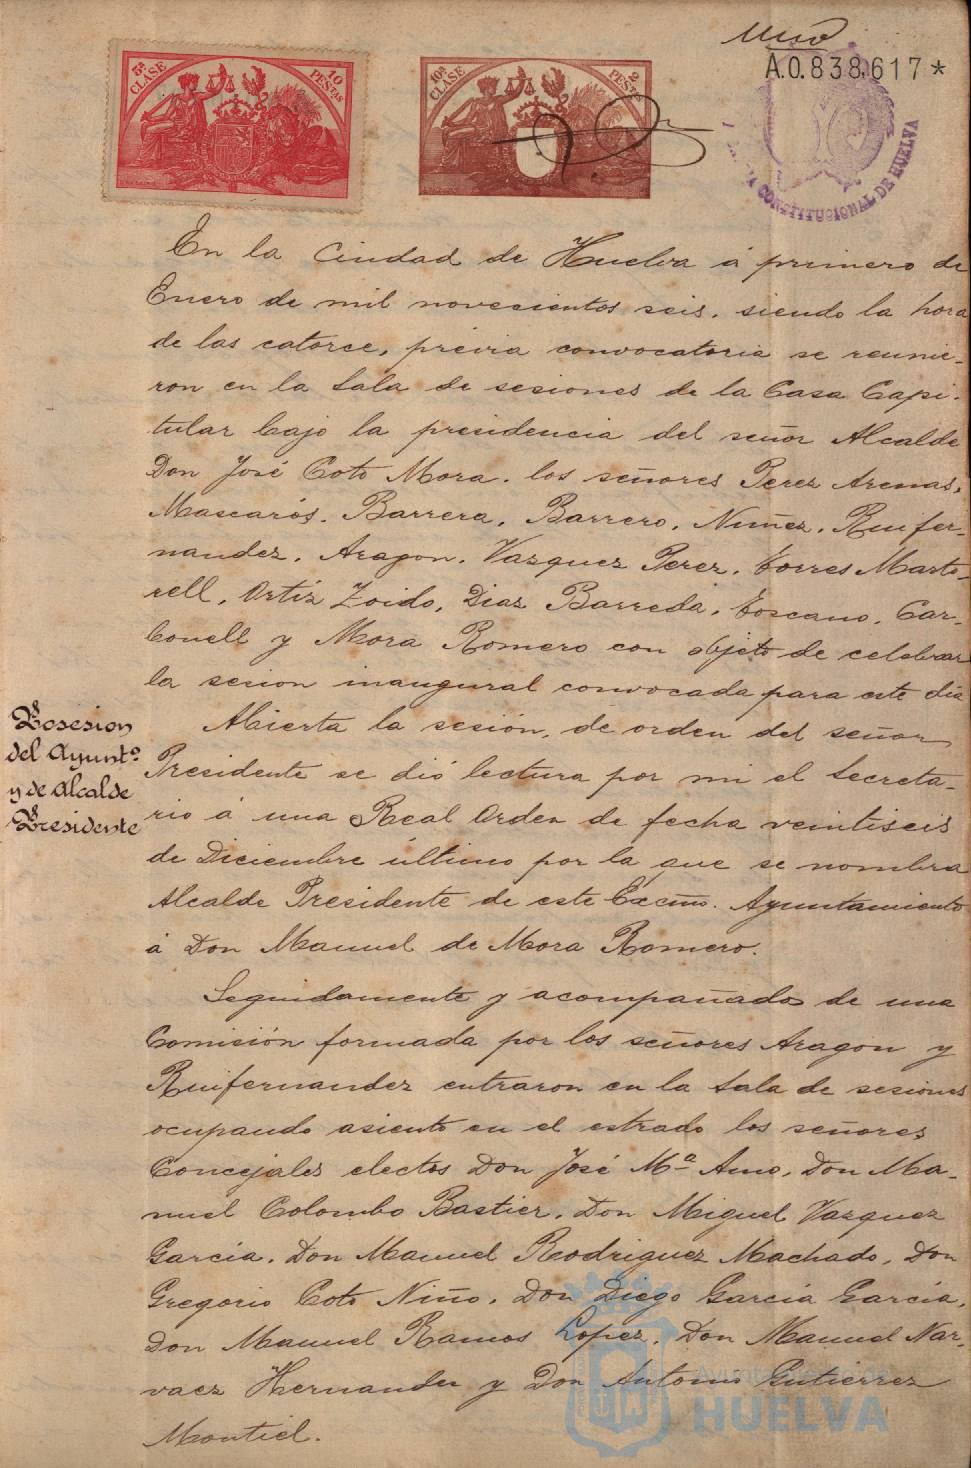 Uno
A.0.838,617*
5ª CLASE 10 PESTAS
10ª CLASE 2 PESTAS
CONSTITUCIONAL DE HUELVA
En la Ciudad de Huelva á primero de
Enero de mil novecientos seis, siendo la hora
de las catorce, prévia convocatoria se reunie-
ron en la Sala de sesiones de la Casa Capi-
tular bajo la presidencia del señor Alcalde
Don José Coto Mora, los señores Perez Arenas,
Mascarós, Barrera, Barrero, Nuñez, Ruifer-
nandez, Aragon, Vazquez Perez, Torres Marto-
rell, Ortíz Zoido, Diaz Barreda, Toscano, Car-
bonell y Mora Romero con objeto de celebrar
la sesion inaugural convocada para este dia
Posesion
del Ayuntº
y de Alcalde
Presidente
Abierta la sesión, de orden del señor
Presidente se dió lectura por mi el Secreta-
rio á una Real Orden de fecha veintiseis
de Diciembre último por la que se nombra
Alcalde Presidente de este Excmo. Ayuntamiento
á Don Manuel de Mora Romero.
Seguidamente y acompañados de una
Comisión formada por los señores Aragon y
Ruifernandez entraron en la Sala de sesiones
ocupando asiento en el estrado los señores
Concejales electos Don José Mª Amo, Don Ma-
nuel Colombo Bastier, Don Miguel Vazquez
García, Don Manuel Rodriguez Machado, Don
Gregorio Coto Niño, Don Diego García García,
Don Manuel Ramos Lopez, Don Manuel Nar-
vaez Hernandez y Don Antonio Gutierrez
Montiel.
Ayuntamiento de
HUELVA